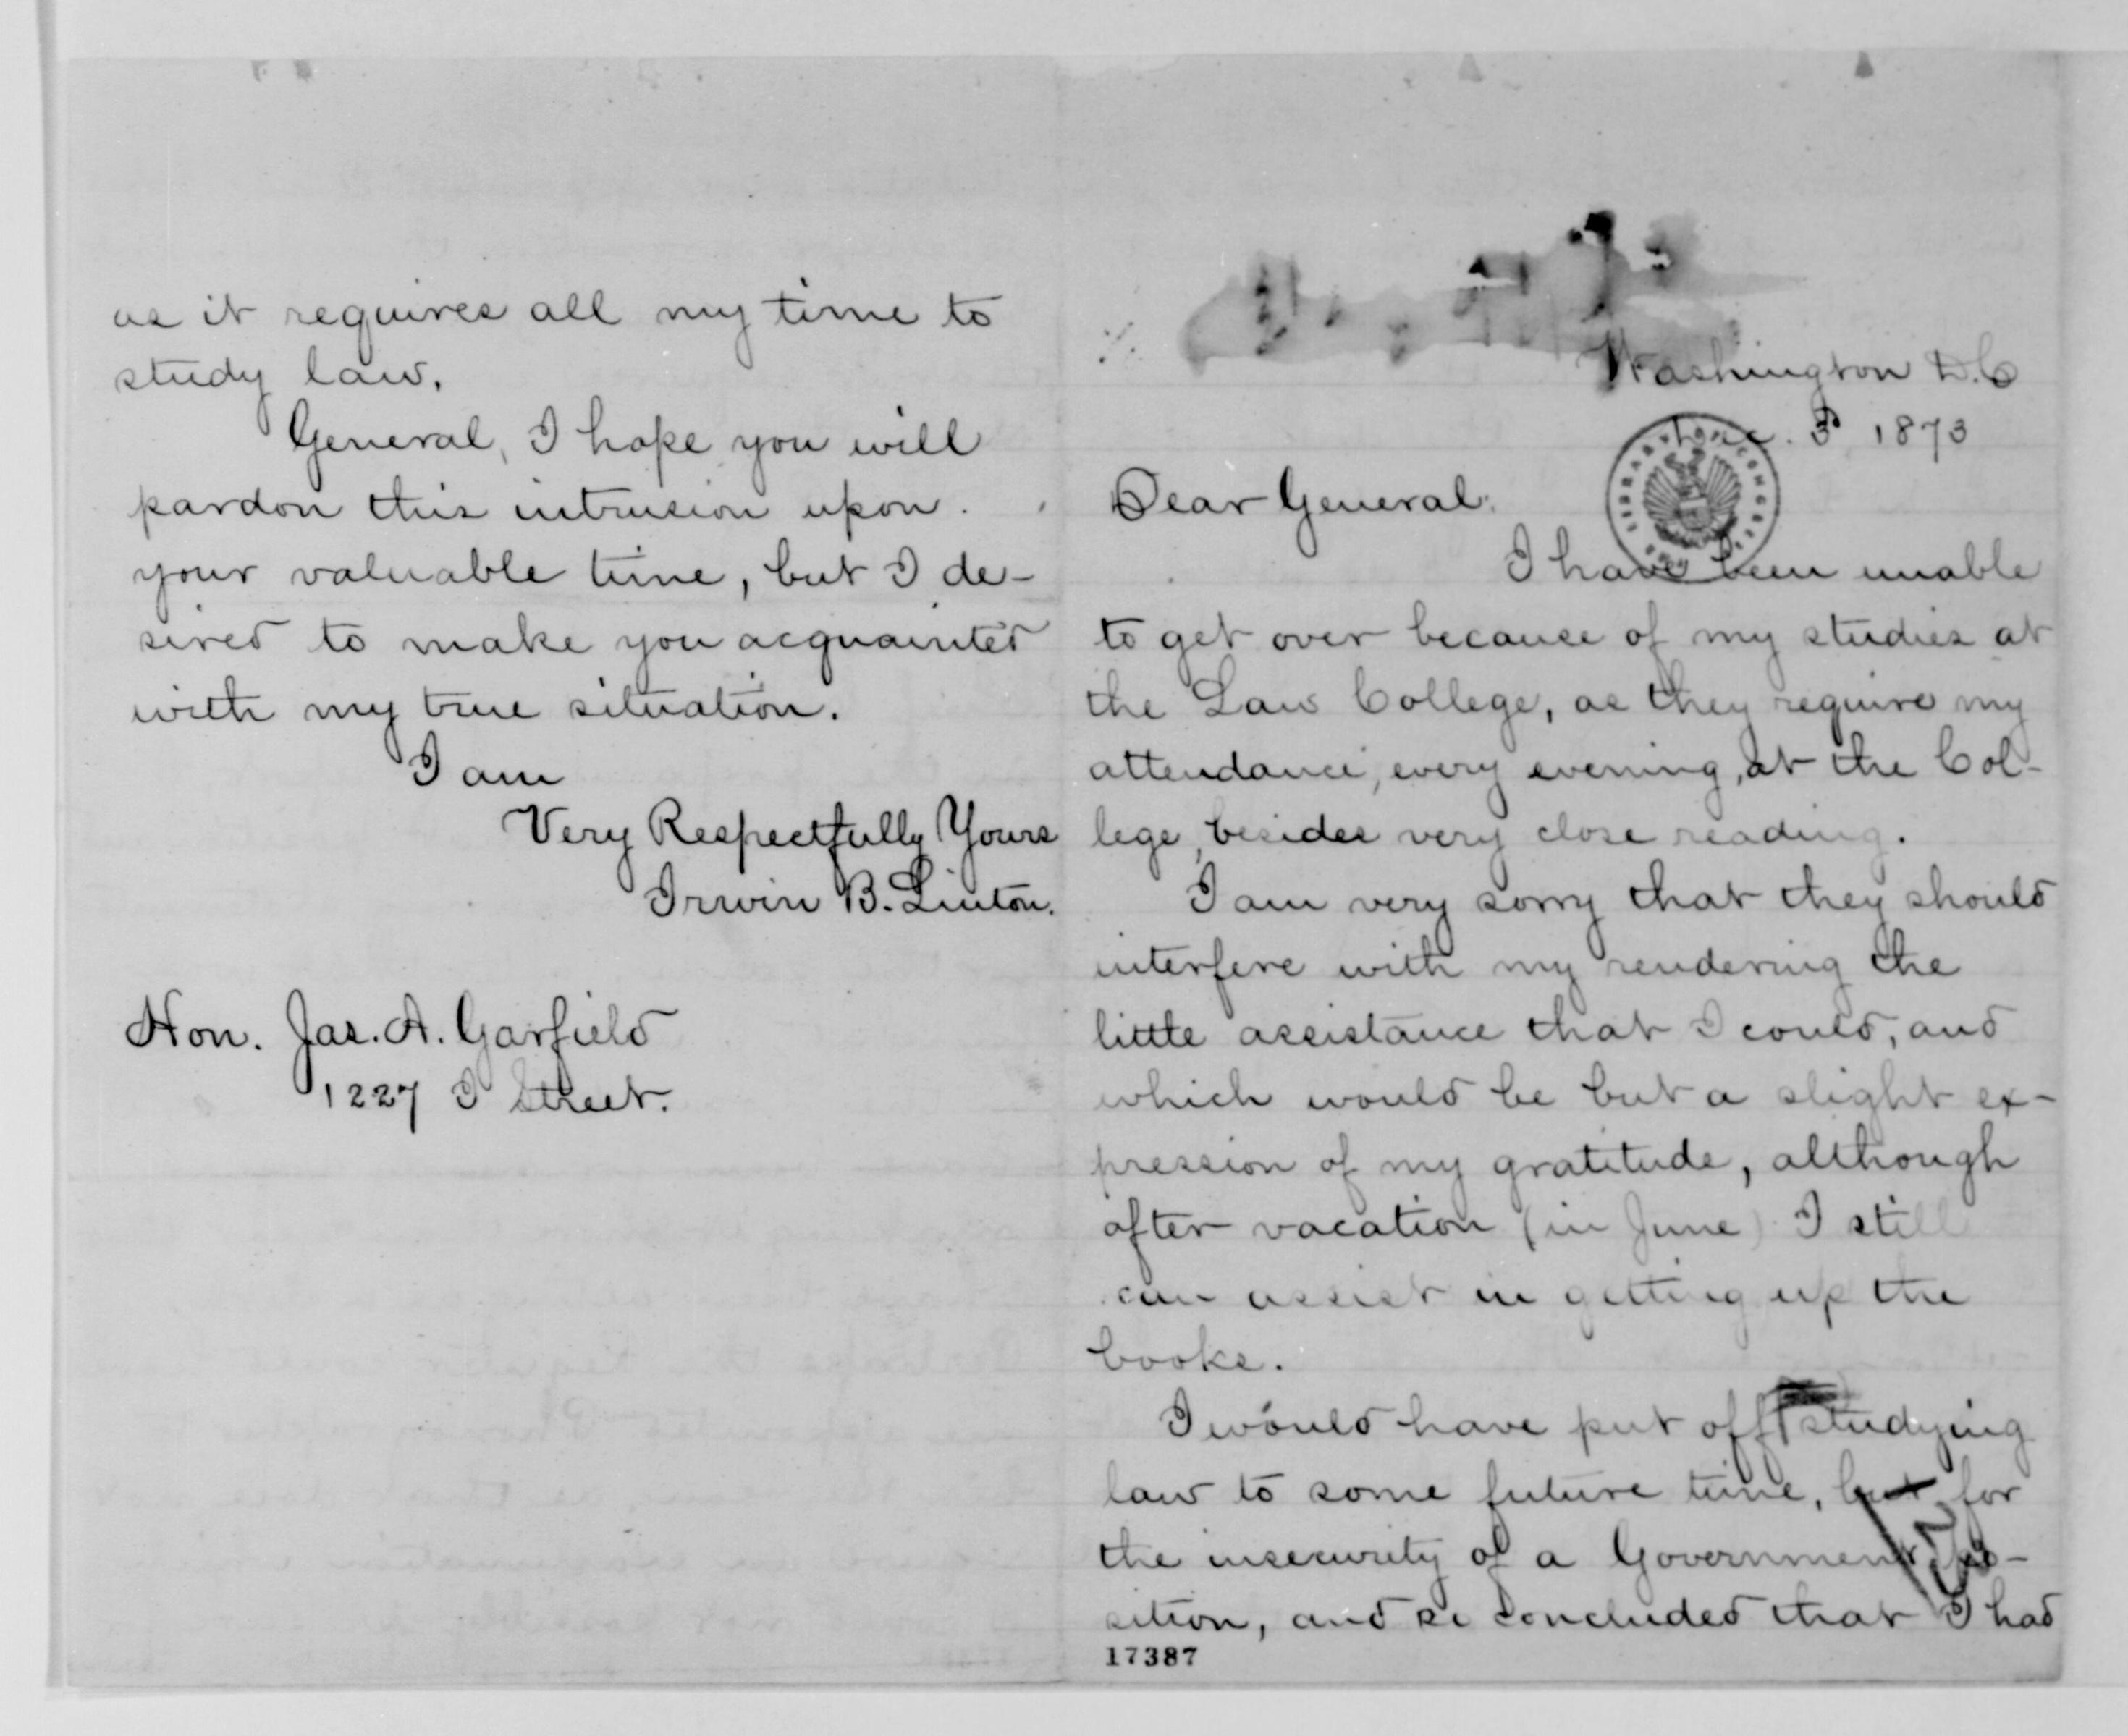 Washington D.C
Dec. 3 1873
Dear General.
I have been unable
to get over because of my studies at
the Law College, as they require my
attendance, every evening, at the Col-
lege, besides very close reading.
I am very sorry that they should
interfere with my rendering the
little assistance that I could, and
which would be but a slight ex-
pression of my gratitude, although
after vacation (in June) I still
can assist in getting up the
books.
I would have put off studying
law to some future time, but for
the insecurity of a Government po-
sition, and so concluded that I had
17387
as it requires all my time to
study law.
General, I hope you will
pardon this intrusion upon
your valuable time, but I de-
sired to make you acquainted
with my true situation.
I am
Very Respectfully Yours
Irwin B. Linton.
Hon. Jas. A. Garfield
1227 I Street.